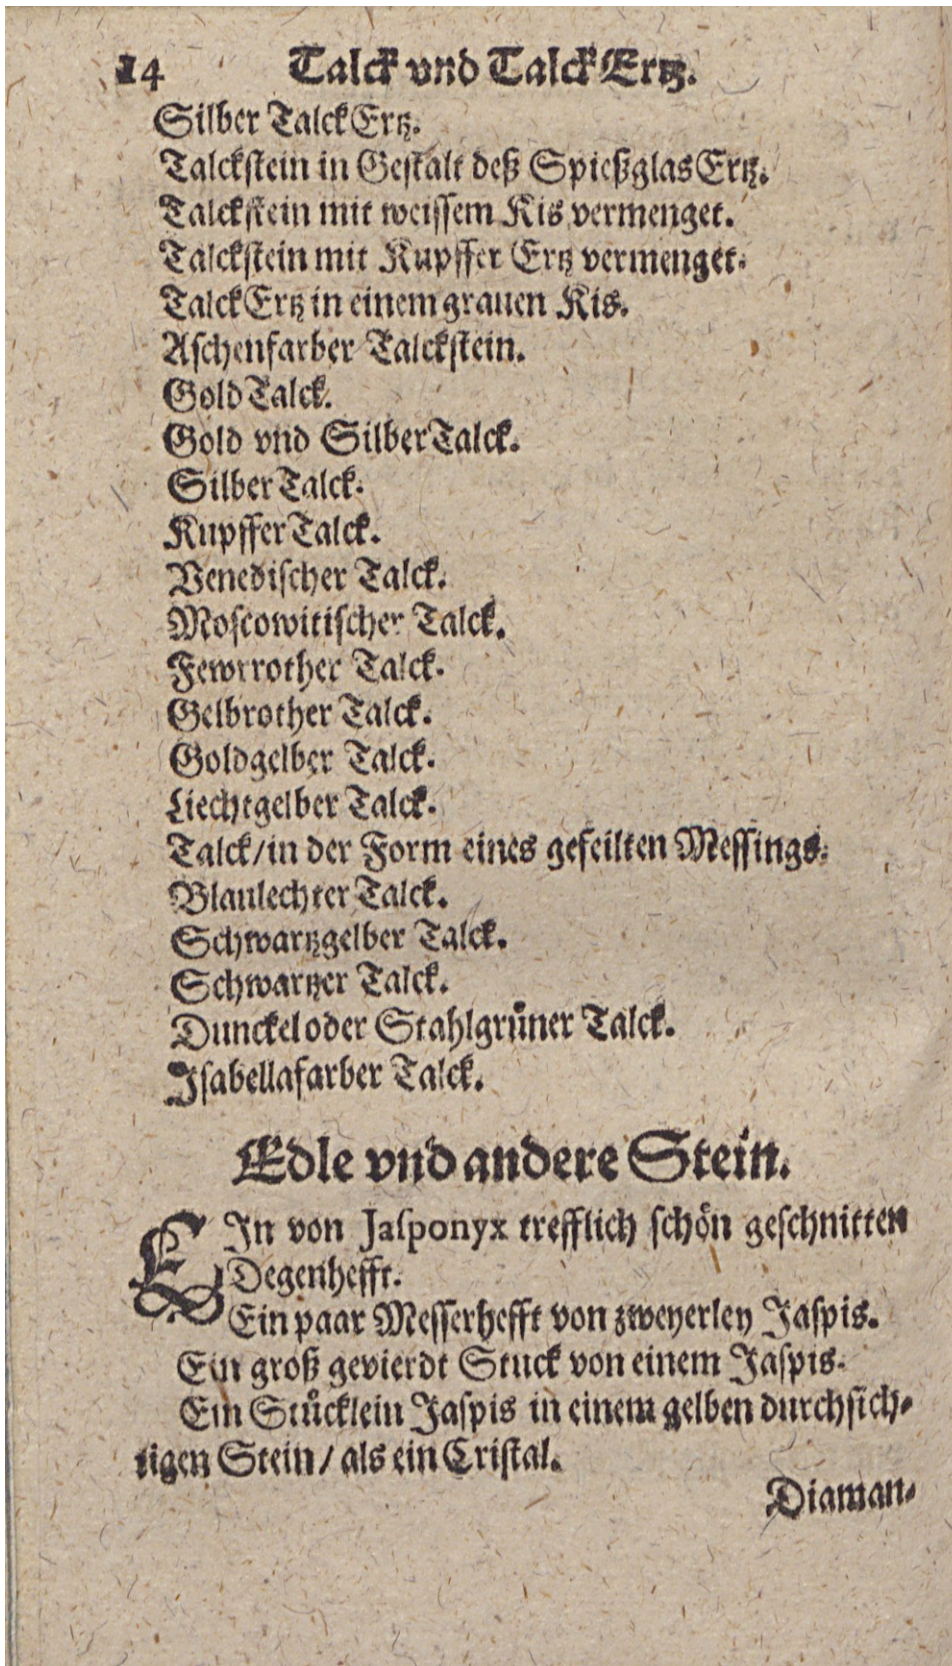 14 Talck vnd Talck Ertz.
Silber Talck Ertz.
Talckstein in Gestalt deß Spießglas Ertz.
Talckstein mit weissem Kis vermenget.
Talckstein mit Kupffer Ertz vermenget.
Talck Ertz in einem grauen Kis.
Aschenfarber Talckstein.
Gold Talck.
Gold vnd Silber Talck.
Silber Talck.
Kupffer Talck.
Venedischer Talck.
Moscowitischer Talck.
Fewrrother Talck.
Gelbrother Talck.
Goldgelber Talck.
Liechtgelber Talck.
Talck/in der Form eines gefeilten Messings.
Blaulechter Talck.
Schwartzgelber Talck.
Schwartzer Talck.
Dunckel oder Stahlgrůner Talck.
Isabellafarber Talck.
Edle vnd andere Stein.
EIn von Jasponyx trefflich schön geschnitten
Degenhefft.
Ein paar Messerhefft von zweyerley Jaspis.
Ein groß gevierdt Stuck von einem Jaspis.
Ein Stůcklein Jaspis in einem gelben durchsich-
tigen Stein/ als ein Cristal.
Diaman-